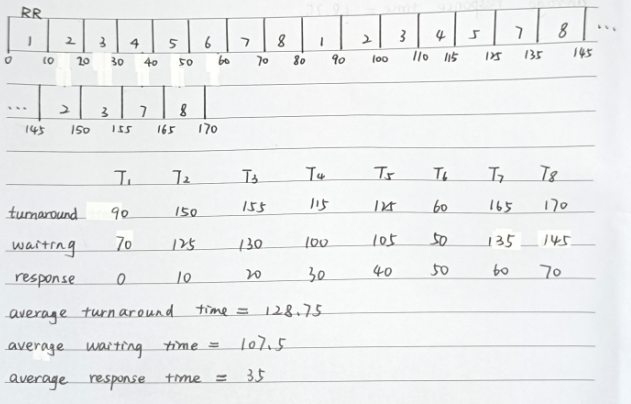 RR
1 2 3 4 5 6 7 8 1 2 3 4 5 7 8 ...
0 10 20 30 40 50 60 70 80 90 100 110 115 125 135 145
... 2 3 7 8
145 150 155 165 170
T1 T2 T3 T4 T5 T6 T7 T8
turnaround 90 150 155 115 125 60 165 170
waiting 70 125 130 100 105 50 135 145
response 0 10 20 30 40 50 60 70
average turnaround time = 128.75
average waiting time = 107.5
average response time = 35